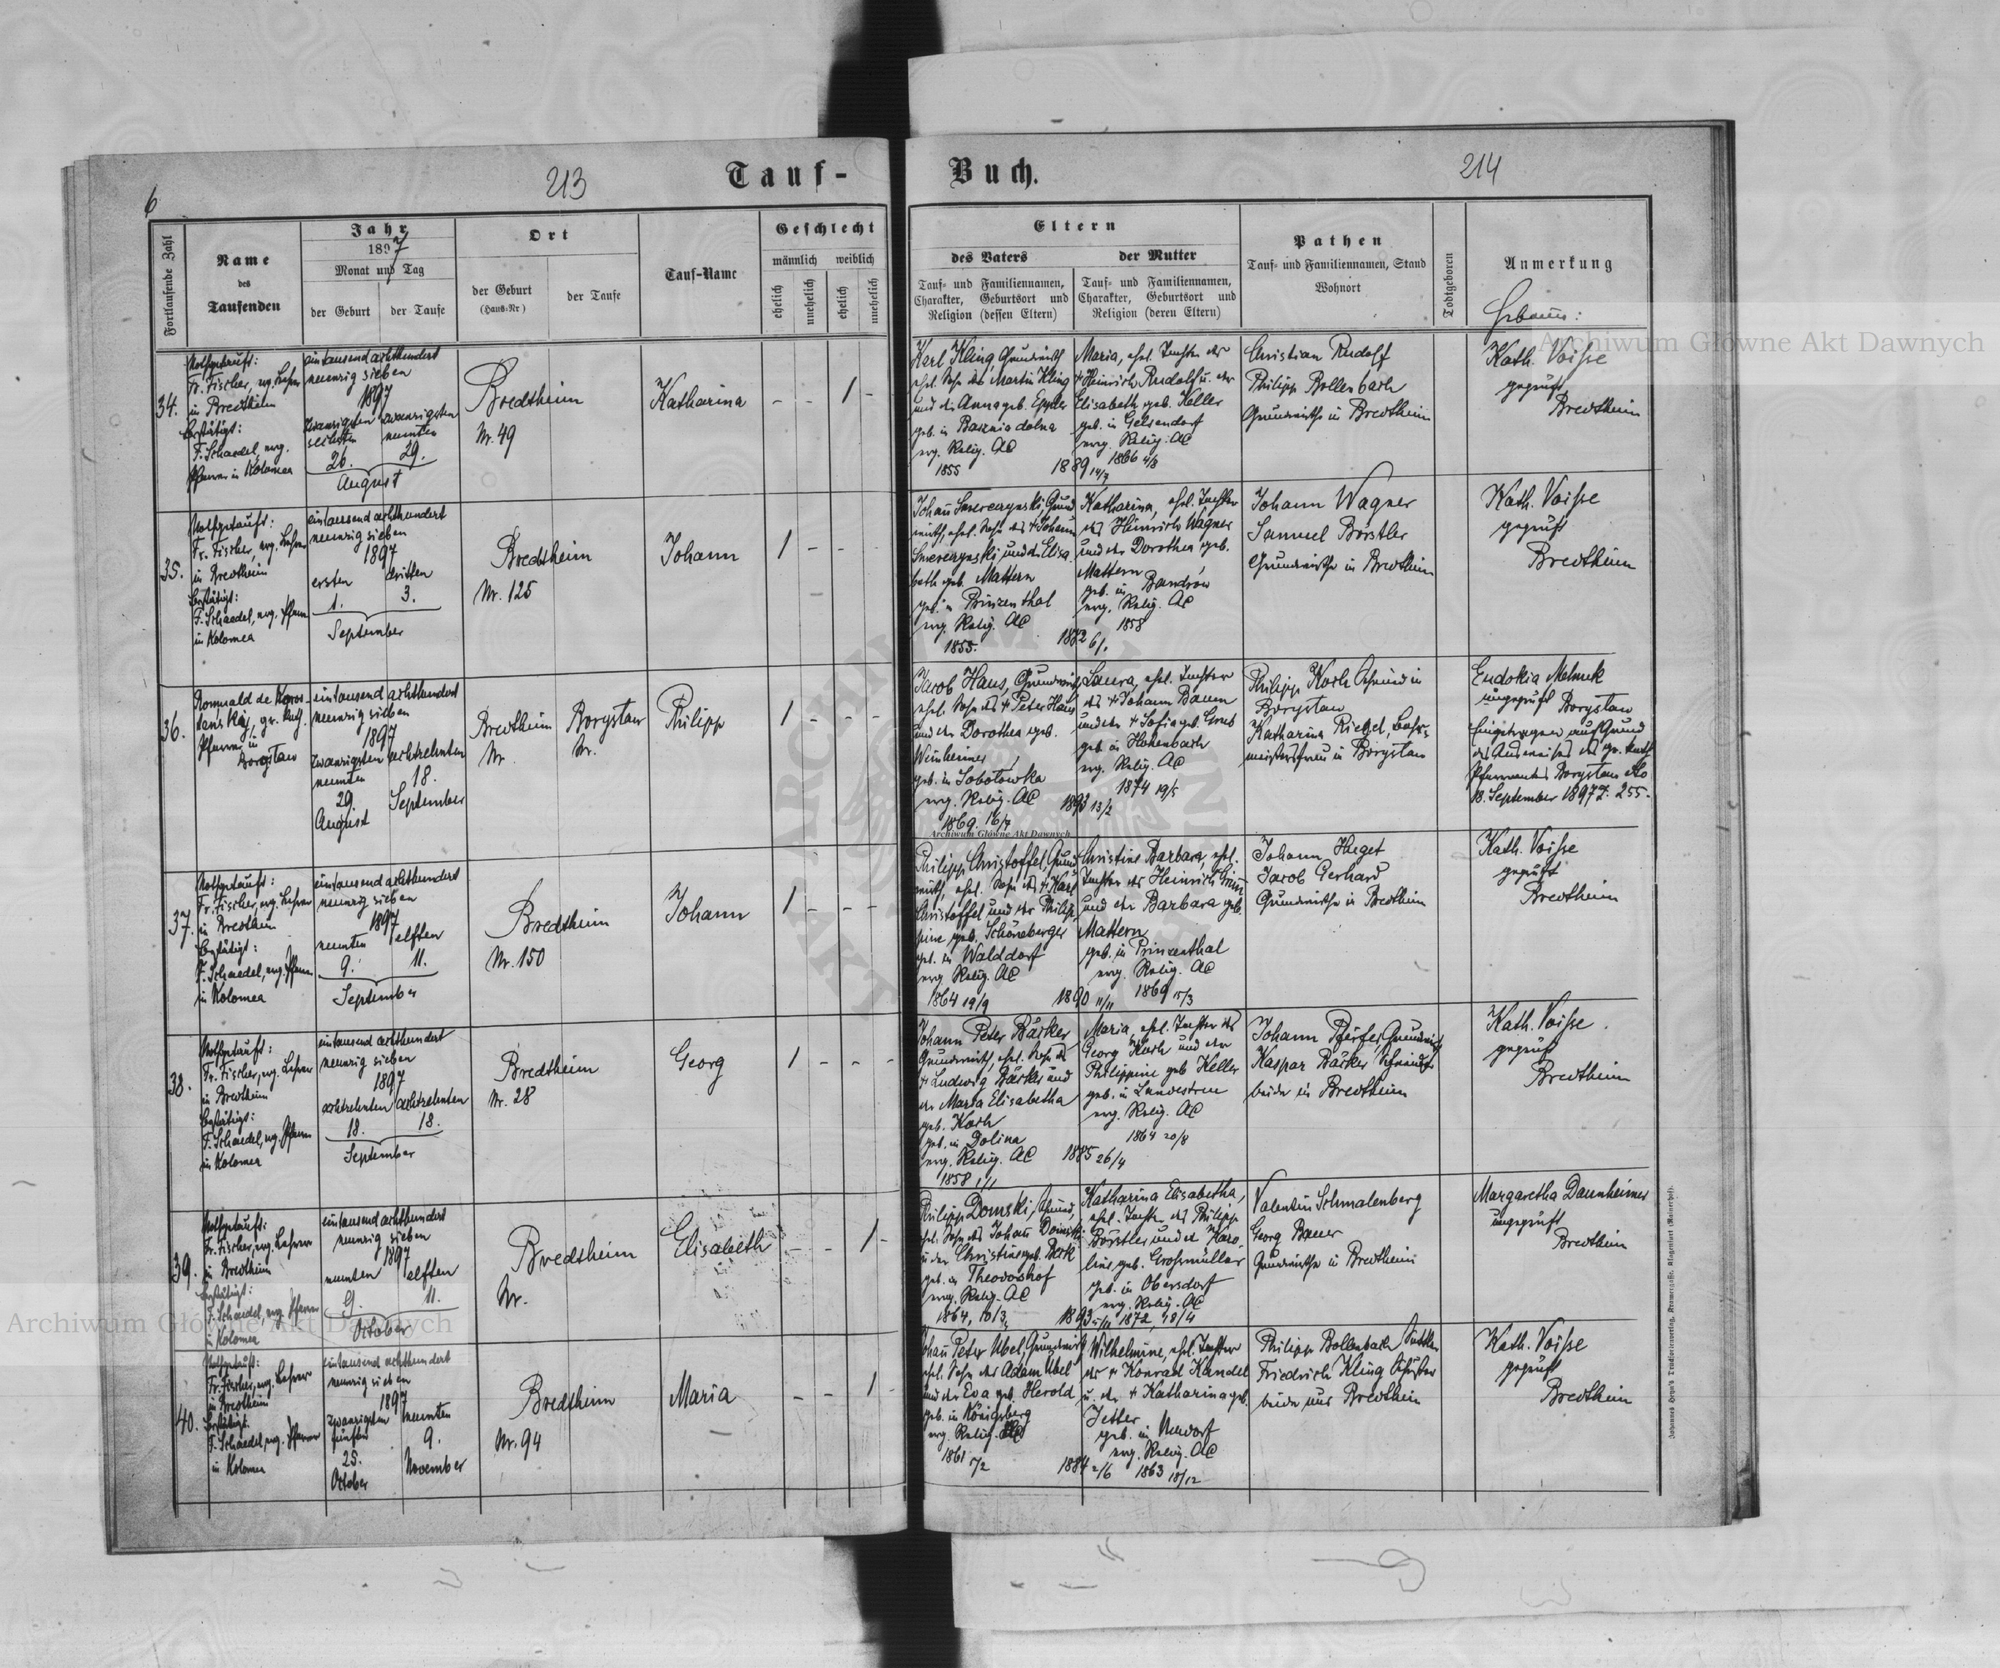 6
213
Tauf-
Buch.
214
Fortlaufende Zahl
Name
des
Taufenden
Jahr
1897
Monat und Tag
der Geburt
der Taufe
Ort
der Geburt
(Haus-Nr)
der Taufe
Tauf-Name
Geschlecht
männlich
weiblich
ehelich
unehelich
ehelich
unehelich
Eltern
des Vaters
Tauf- und Familiennamen,
Charakter, Geburtsort und
Religion (dessen Eltern)
der Mutter
Tauf- und Familiennamen,
Charakter, Geburtsort und
Religion (deren Eltern)
Pathen
Tauf- und Familiennamen, Stand
Wohnort
Todtgeboren
Anmerkung
34.
Nothgetauft:
Fr. Fischer, evg. Lehrer
in Bredtheim
Bestätigt:
F. Schaedel, evg.
Pfarrer in Kolomea
eintausend achthundert
neunzig sieben
1897
zwanzigsten
sechsten
26.
zwanzigsten
neunten
29.
August
Bredtheim
Nr. 49
Katharina
- - 1 -
Karl Kling, Grundwirth
ehel. Sohn des Martin Kling
geb. in Basznia dolna
evg. Relig. AC
1855
1889 14/7
Maria, ehel. Tochter des
+ Heinrich Rudolf u. der
Elisabeth geb. Keller
geb. in Gelsendorf
evg. Relig. AC
1866 4/8
Christian Rudolf
Philipp Bollenbach
Grundwirthe in Bredtheim
Kath. Voisse
geprüft
Bredtheim
35.
Nothgetauft:
Fr. Fischer, evg. Lehrer
in Bredtheim
Bestätigt:
F. Schaedel, evg. Pfarrer
in Kolomea
eintausend achthundert
neunzig sieben
1897
ersten
1.
dritten
3.
September
Bredtheim
Nr. 125
Johann
1 - - -
beth geb. Mattern
geb. in Prinzenthal
evg. Relig. AC
1855.
1882 6/.
Katharina, ehel. Tochter
des Heinrich Wagner
und der Dorothea geb.
Mattern
geb. in Bandrów
evg. Relig. AC
1858
Johann Wagner
Samuel Börstler
Grundwirthe in Bredtheim
Kath. Voisse
geprüft
Bredtheim
36.
Pfarrer in
Borystau
eintausend achthundert
neunzig sieben
1897
zwanzigsten
neunten
29.
August
achtzehnten
18.
September
Bredtheim
Nr.
Borystau
Nr.
Philipp
1 - - -
Jacob Haus, Grundwirth
ehel. Sohn des + Peter Haus
und der Dorothea geb.
Weinheimer
geb. in Sobotowka
evg. Relig. AC
1869. 16/7
1893 13/2
Laura, ehel. Tochter
des + Johann Baum
und der + Sofia geb. Grub
geb. in Hohenbach
evg. Relig. AC
1874 19/5
Philipp Koch
Borystau
Katharina Riegel,
in Borystau
Eudokia Melnuk
ungeprüft Borystau
Eingetragen auf Grund
des Ausweises des gr. kath
Pfarramtes Borystau dto
18. September 1897 Z. 255.
37.
Nothgetauft:
Fr. Fischer, evg. Lehrer
in Bredtheim
Bestätigt:
F. Schaedel, evg. Pfarrer
in Kolomea
eintausend achthundert
neunzig sieben
1897
neunten
9.
elften
11.
September
Bredtheim
Nr. 150
Johann
1 - - -
Philipp Christoffel, Grund
wirth, ehel. Sohn des + Karl
Christoffel und der Philip-
pine geb. Schöneberger
geb. in Walddorf
evg. Relig. AC
1864 19/9
1890 11/11
Christine Barbara, ehel.
Tochter des Heinrich
und der Barbara geb.
Mattern
geb. in Prinzenthal
evg. Relig. AC
1869 15/3
Johann Huget
Jacob Gerhard
Grundwirthe in Bredtheim
Kath. Voisse
geprüft
Bredtheim
38.
Nothgetauft:
Fr. Fischer, evg. Lehrer
in Bredtheim
Bestätigt:
F. Schaedel, evg. Pfarrer
in Kolomea
eintausend achthundert
neunzig sieben
1897
achtzehnten
18.
achtzehnten
18.
September
Bredtheim
Nr. 28
Georg
1 - - -
Johann Peter Bäcker
Grundwirth, ehel. Sohn des
+ Ludwig Bäcker und
der Maria Elisabetha
geb. Koch
geb. in Dolina
evg. Relig. AC
1858 1/1
1885 26/4
Maria, ehel. Tochter des
Georg Koch und der
Philippine geb. Keller
geb. in Landestreu
evg. Relig. AC
1864 20/8
Johann Grundwirth
Kaspar Bäcker
beide in Bredtheim
Kath. Voisse.
geprüft
Bredtheim
39.
Nothgetauft:
Fr. Fischer, evg. Lehrer
in Bredtheim
Bestätigt:
F. Schaedel, evg. Pfarrer
in Kolomea
eintausend achthundert
neunzig sieben
1897
neunten
9.
elften
11.
October
Bredtheim
Nr.
Elisabeth
- - 1 -
Philipp Domski,
ehel. Sohn des Johann Domski
geb. in Theodorshof
evg. Relig. AC
1864, 10/3
Katharina Elisabetha,
ehel. Tochter des Philipp
Börstler und der Karo-
line geb. Grossmüller
geb. in Obersdorf
evg. Relig. AC
1872 18/4
Valentin Schmalenberg
Georg Bauer
Grundwirthe in Bredtheim
Margaretha Dannheimer
ungeprüft
Bredtheim
40.
Nothgetauft:
Fr. Fischer, evg. Lehrer
in Bredtheim
Bestätigt:
F. Schaedel, evg. Pfarrer
in Kolomea
eintausend achthundert
neunzig sieben
1897
zwanzigsten
fünften
25.
October
neunten
9.
November
Bredtheim
Nr. 94
Maria
- - 1 -
Johann Peter Ubel, Grundwirth
ehel. Sohn des Adam Ubel
und der Eva geb. Herold
geb. in Königsberg
evg. Relig.
1861 5/2
1884 2/6
Wilhelmine, ehel. Tochter
des + Konrad Kandel
u. der + Katharina geb.
Jetter
geb. in Neudorf
evg. Relig. AC
1863 18/12
Philipp Bollenbach Sattler
Friedrich Kling Schuster
beide aus Bredtheim
Kath. Voisse
geprüft
Bredtheim
Archiwum Główne Akt Dawnych
Archiwum Główne Akt Dawnych
Archiwum Główne Akt Dawnych